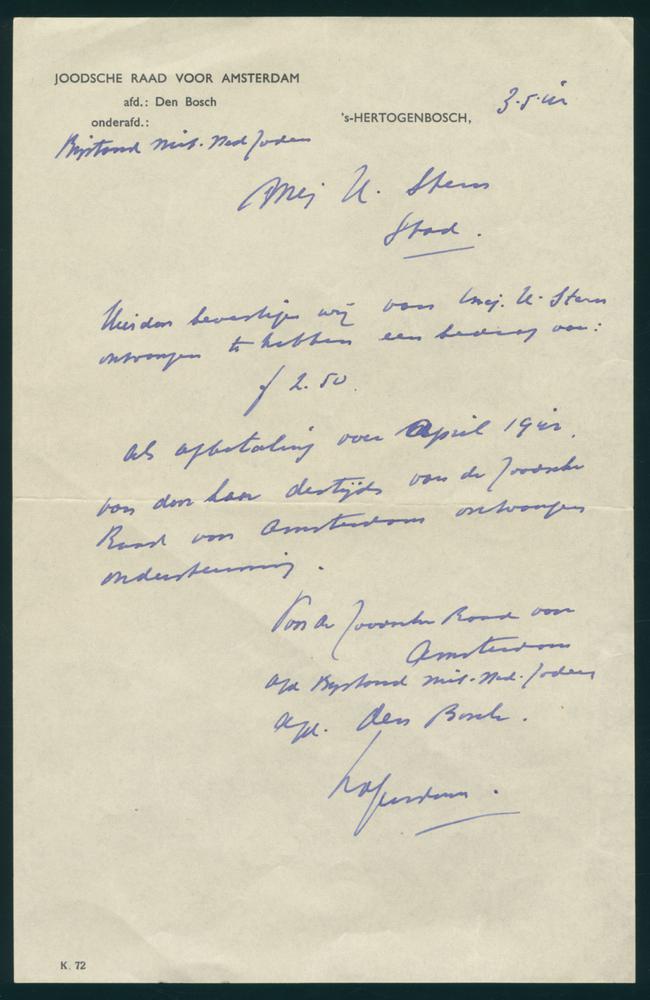 JOODSCHE RAAD VOOR AMSTERDAM
afd.: Den Bosch
onderafd.:
's-HERTOGENBOSCH,
Bijstand niet. Ned Joden
Mej U. Stern
Stad.
Hierdoor bevestigen wij van mej. U. Stern
ontvangen te hebben een bedrag van:
f 2.50.
als afbetaling over April
van door haar destijds van de Joodsche
Raad voor Amsterdam ontvangen
ondersteuning.
Voor de Joodsche Raad voor
Amsterdam
afd Bijstand niet. Ned. Joden
afd. Den Bosch.
K. 72